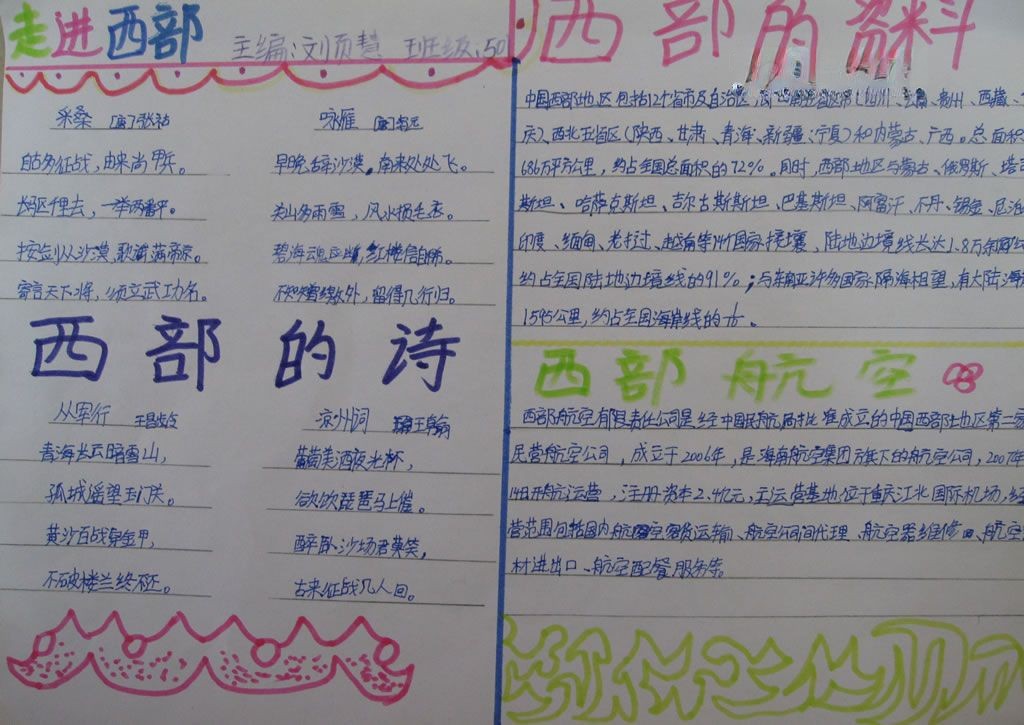 走进西部
主编:刘页慧 班级:50
采桑
咏雁
自古多征战,由来尚甲兵。
早晚去沙漠。南来处处飞。
长驱千里去,一举两番平。
关山多雨雪,风水损毛衣。
按剑从沙漠,歌谣满帝京。
碧海魂,红楼信自稀。
寄言天下将,须立武功名。
不知矰缴外,留得几行归。
西部的诗
从军行 王昌龄
凉州词 王翰
青海长云暗雪山,
葡萄美酒夜光杯,
孤城遥望玉门关。
欲饮琵琶马上催。
黄沙百战穿金甲,
醉卧沙场君莫笑,
不破楼兰终不还。
古来征战几人回。
西部的资料
中国西部地区包括12个省市及自治区,四川、云南、贵州、西藏、
庆)、西北五省区(陕西、甘肃、青海、新疆、宁夏)和内蒙古、广西。总面积
686万平方公里,约占全国总面积的72%。同时,西部地区与蒙古、俄罗斯、塔吉
斯坦、哈萨克斯坦、吉尔吉斯斯坦、巴基斯坦、阿富汗、不丹、锡金、尼泊
印度、缅甸、老挝、越南等14个国家接壤,陆地边境线长达1.8万余
约占全国陆地边境线的91%;与东南亚许多国家隔海相望,有大陆海
1595公里,约占全国海岸线的1/10。
西部航空
西部航空有限责任公司是经中国民航局批准成立的中国西部地区第一家
民营航空公司,成立于2006年,是海南航空集团旗下的航空公司,2007年
14日开航运营,注册资本2.4亿元,主运营基地位于重庆江北国际机场,经
营范围包括国内航空客货运输、航空公司间代理、航空器维修、航空
材进出口、航空配餐服务等。